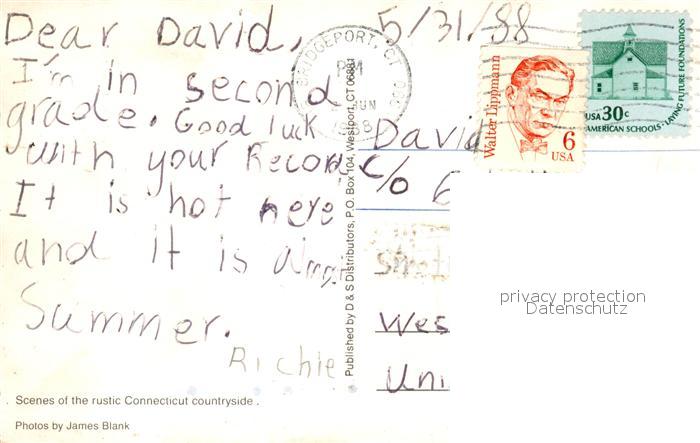 Dear David,
5/31/88
I'm in second
grade. Good luck
with your Record
It is hot here
and it is
Summer.
Richie
Scenes of the rustic Connecticut countryside.
Photos by James Blank
Published by D & S Distributors, P.O. Box 104, Westport, CT 06881
BRIDGEPORT, CT
PM
JUN
Walter Lippmann
6
USA
USA 30c
AMERICAN SCHOOLS · LAYING FUTURE FOUNDATIONS
David
c/o
Wes
Uni
privacy protection
Datenschutz